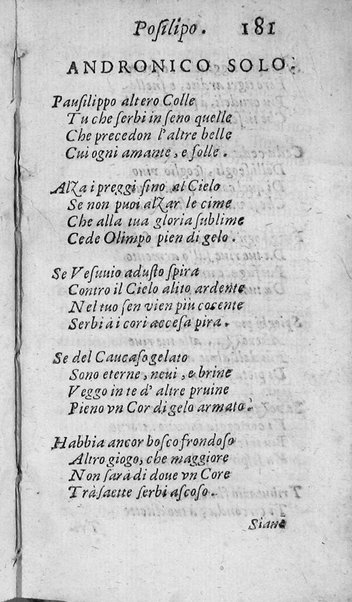 Posilipo. 181
ANDRONICO SOLO.
Pausilippo altero Colle
Tu che serbi in seno quelle
Che precedon l'altre belle
Cui ogni amante, e folle.
Alza i preggi sino al Cielo
Se non puoi alzar le cime
Che alla tua gloria sublime
Cede Olimpo pien di gelo.
Se Vesuuio adusto spira
Contro il Cielo alito ardente
Nel tuo sen vien più cocente
Serbi à i cori accesa pira.
Se del Caucaso gelato
Sono eterne, neui, e brine
Veggo in te d' altre pruine
Pieno vn Cor di gelo armato.
Habbia ancor bosco frondoso
Altro giogo, che maggiore
Non sara di doue vn Core
Trà saette serbi ascoso.
Siano